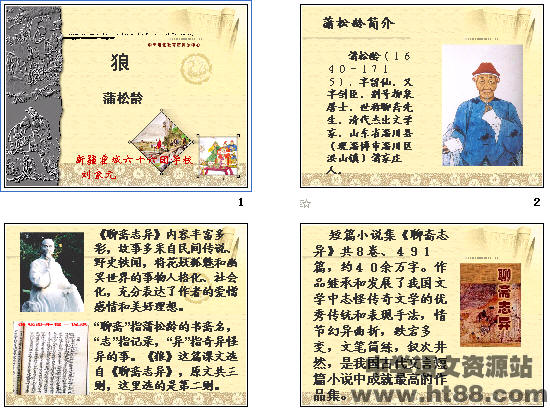 狼
蒲松龄
刘家元
1
蒲松龄简介
蒲松龄(16
40-171
5),字留仙,又
字剑臣,别号柳泉
居士,世称聊斋先
生,清代杰出文学
家,山东省淄川县
(现淄博市淄川区
洪山镇)蒲家庄
人。
2
《聊斋志异》内容丰富多
彩,故事多来自民间传说、
野史轶闻,将花妖狐魅和幽
冥世界的事物人格化、社会
化,充分表达了作者的爱憎
感情和美好理想。
“聊斋”指蒲松龄的书斋名,
“志”指记录,“异”指奇异怪
异的事。《狼》这篇课文选
自《聊斋志异》,原文共三
则,这里选的是第二则。
短篇小说集《聊斋志
异》共8卷、491
篇,约40余万字。作
品继承和发展了我国文
学中志怪传奇文学的优
秀传统和表现手法,情
节幻异曲折,跌宕多
变,文笔简练,叙次井
然,是我国古代文言短
篇小说中成就最高的作
品集。
聊斋志异
www.ht88.com